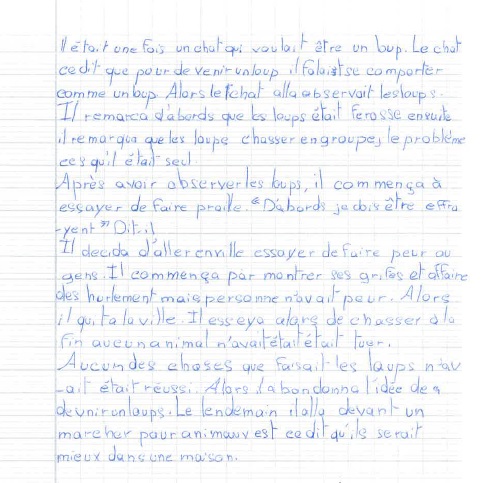 Il était une fois un chat qui voulait être un loup. Le chat
ce dit que pour devenir un loup il falait se comporter
comme un loup. Alors le tchat alla observait les loups.
Il remarca d'abords que les loups était ferosse ensuite
il remarqua que les loups chasser en groupe, le problème
ces qu'il était seul.
Après avoir observer les loups, il commença à
essayer de faire praille. "D'abords je dois être effra
-yent" Dit il
Il decida d'aller en ville essayer de faire peur au
gens. Il commença par montrer ses grifes et affaire
des hurlement mais personne n'avait peur. Alors
il quita la ville. Il esseya alors de chasser a la
fin aucun animal n'avait était était tuer.
Aucun des choses que faisait les loups n'av
-ait était réussi. Alors l abondonna l'idée de
devnir un loups. Le lendemain il ally devant un
marcher pour animaux est ce dit qu'ils serait
mieux dans une maison.